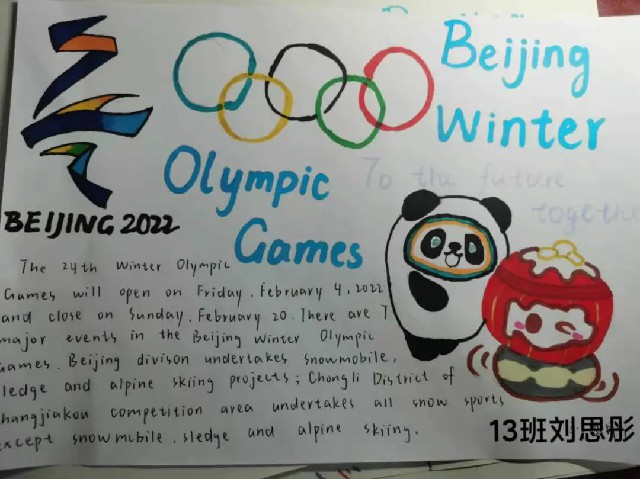 Beijing
Winter
Olympic
Games
To the future
together
BEIJING 2022
The 24th Winter Olympic
Games will open on Friday, February 4, 2022
and close on Sunday, February 20. There are 7
major events in the Beijing Winter Olympic
Games. Beijing divison undertakes snowmobile,
sledge and alpine skiing projects; Chongli District of
Zhangjiakou competition area undertakes all snow sports
except snowmobile, sledge and alpine skiing.
13班刘思彤